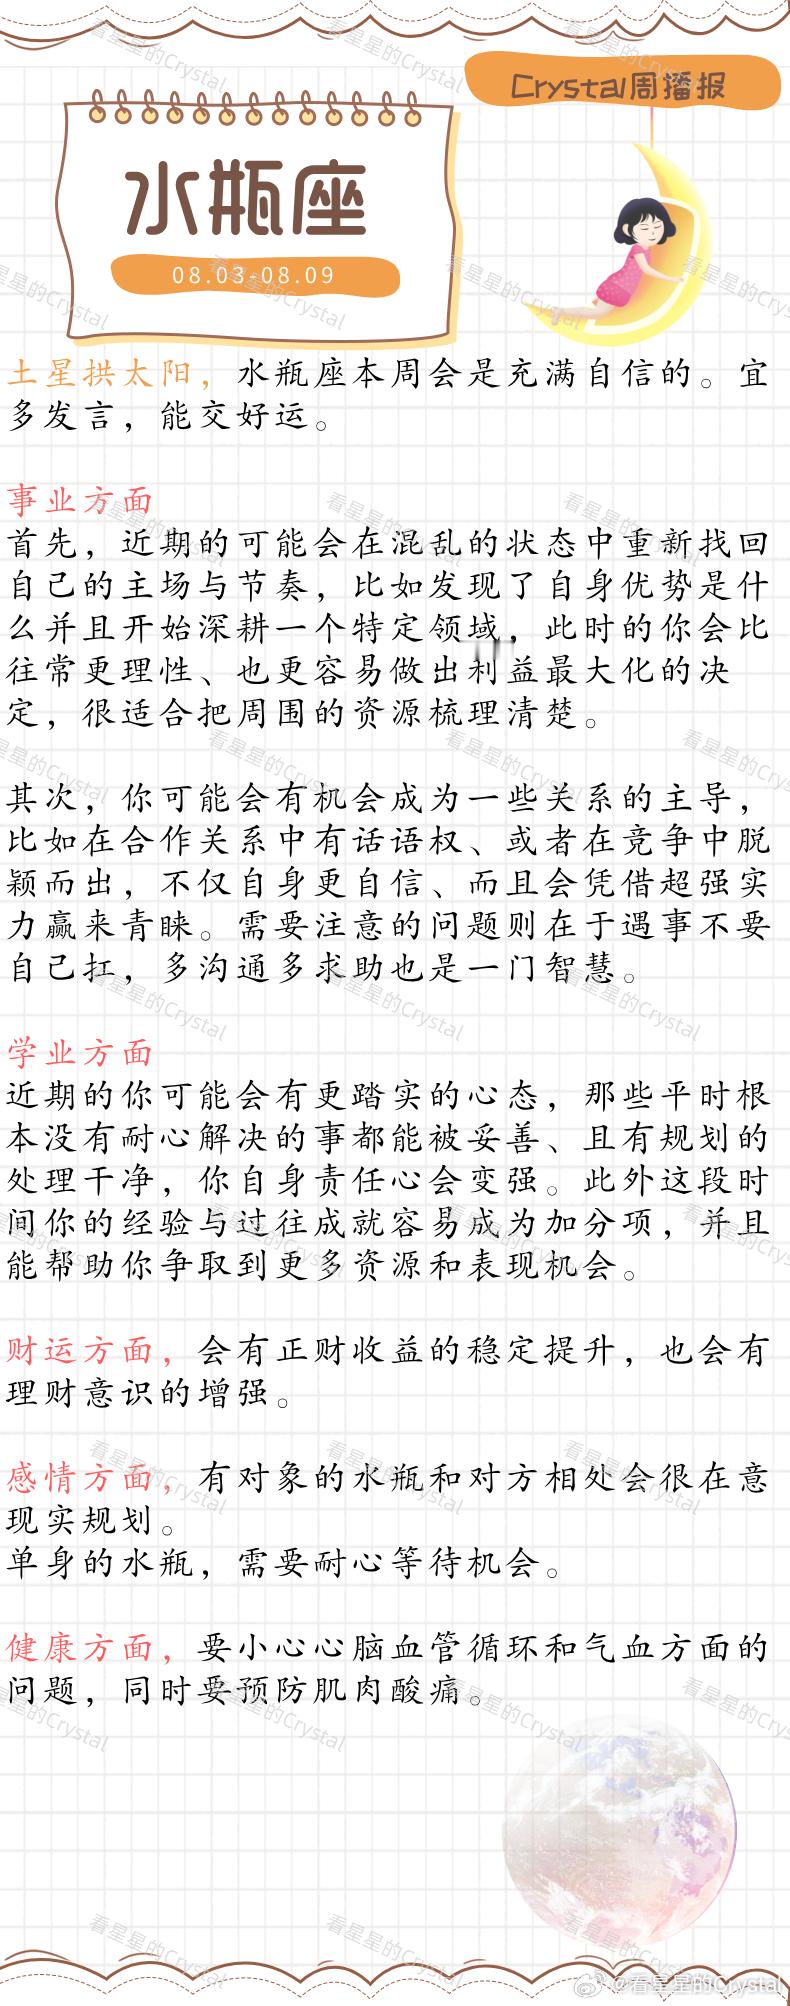 Crystal周播报
水瓶座
08.03-08.09
土星拱太阳，水瓶座本周会是充满自信的。宜
多发言，能交好运。
事业方面
首先，近期的可能会在混乱的状态中重新找回
自己的主场与节奏，比如发现了自身优势是什
么并且开始深耕一个特定领域，此时的你会比
往常更理性、也更容易做出利益最大化的决
定，很适合把周围的资源梳理清楚。
其次，你可能会有机会成为一些关系的主导，
比如在合作关系中有话语权、或者在竞争中脱
颖而出，不仅自身更自信、而且会凭借超强实
力赢来青睐。需要注意的问题则在于遇事不要
自己扛，多沟通多求助也是一门智慧。
学业方面
近期的你可能会有更踏实的心态，那些平时根
本没有耐心解决的事都能被妥善、且有规划的
处理干净，你自身责任心会变强。此外这段时
间你的经验与过往成就容易成为加分项，并且
能帮助你争取到更多资源和表现机会。
财运方面，会有正财收益的稳定提升，也会有
理财意识的增强。
感情方面，有对象的水瓶和对方相处会很在意
现实规划。
单身的水瓶，需要耐心等待机会。
健康方面，要小心心脑血管循环和气血方面的
问题，同时要预防肌肉酸痛。
@看星星的Crystal